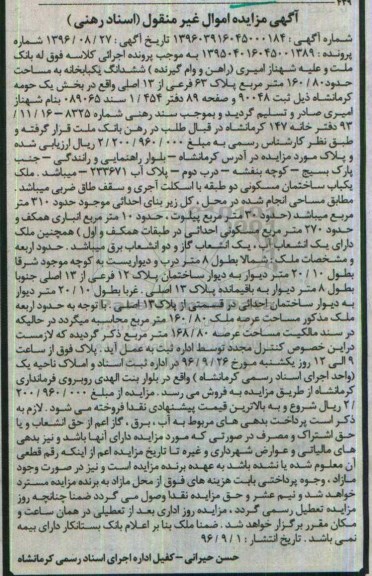 ۲۲۹
آگهی مزایده اموال غیر منقول (اسناد رهنی)
شماره آگهی : ۱۳۹۶۰۳۹۱۶۰۴۵۰۰۰۱۸۴ تاریخ آگهی : ۱۳۹۶/۰۸/۲۷ شماره
پرونده : ۱۳۹۵۰۴۰۱۶۰۴۵۰۰۱۳۸۹ به موجب پرونده اجرائی کلاسه فوق له بانک
ملت و علیه شهناز امیری (راهن و وام گیرنده) ششدانگ یکبابخانه به مساحت
حدود ۱۶۰/۸۰ متر مربع پلاک ۶۳ فرعی از ۱۳ اصلی واقع در بخش یک حومه
کرمانشاه ذیل ثبت ۹۰۰۴۸ و صفحه ۸۹ دفتر ۱/۴۵۴ سند ۰۸۹۰۶۵ بنام شهناز
امیری صادر و تسلیم گردید و بموجب سند رهنی شماره ۸۳۲۵ – ۱۶/۱۱/
۹۳ دفتر خانه ۱۴۷ کرمانشاه در قبال طلب در رهن بانک ملت قرار گرفته و
طبق نظر کارشناس رسمی به مبلغ ۲/۲۰۰/۹۶۰/۰۰۰ ریال ارزیابی شده
و پلاک مورد مزایده در آدرس کرمانشاه – بلوار راهنمایی و رانندگی – جنب
پارک بسیج – کوچه بنفشه – درب دوم – پلاک آب ۲۳۳۶۷۱ – میباشد . ملک
یکباب ساختمان مسکونی دو طبقه با اسکلت آجری و سقف طاق ضربی میباشد
مطابق مساحی انجام شده در محل ، کل زیر بنای احداثی موجود حدود ۳۱۰ متر
مربع میباشد (حدود ۳۰ متر مربع پیلوت ، حدود ۱۰ متر مربع انباری همکف و
حدود ۲۷۰ متر مربع مسکونی احداثی در طبقات همکف و اول ) همچنین ملک
دارای یک انشعاب آب ، یک انشعاب گاز و دو انشعاب برق میباشد . حدود اربعه
و مشخصات ملک : شمالا بطول ۸ متر درب و دیواریست به کوچه موجود شرقا
بطول ۲۰/۱۰ متر دیوار به دیوار ساختمان پلاک ۱۲ فرعی از ۱۳ اصلی جنوبا
بطول ۸ متر دیوار به باقیمانده پلاک ۱۳ اصلی . غربا بطول ۲۰/۱۰ متر دیوار
به دیوار ساختمان احداثی در قسمتی از پلاک ۱۳ اصلی . با توجه به حدود اربعه
ملک مذکور مساحت عرصه ملک ۱۶۰/۸۰ متر مربع محاسبه میگردد در حالیکه
در سند مالکیت مساحت عرصه ۱۶۸/۸۰ متر مربع ذکر گردیده که لازمست
در این خصوص کنترل مجدد توسط اداره ثبت به عمل آید . پلاک فوق از ساعت
۹ الی ۱۲ روز یکشنبه مورخ ۹۶/۹/۲۶ در اداره ثبت اسناد و املاک ناحیه یک
(واحد اجرای اسناد رسمی کرمانشاه ) واقع در بلوار بنت الهدی روبروی فرمانداری
کرمانشاه از طریق مزایده به فروش می رسد . مزایده از مبلغ ۲۰۰/۹۶۰/۰۰۰
/۲ ریال شروع و به بالاترین قیمت پیشنهادی نقدا فروخته می شود . لازم به
ذکر است پرداخت بدهی های مربوط به آب ، برق ، گاز اعم از حق انشعاب و یا
حق اشتراک و مصرف در صورتی که مورد مزایده دارای آنها باشد و نیز بدهی
های مالیاتی و عوارض شهرداری و غیره تا تاریخ مزایده اعم از اینکه رقم قطعی
آن معلوم شده یا نشده باشد به عهده برنده مزایده است و نیز در صورت وجود
مازاد ، وجوه پرداختی بابت هزینه های فوق از محل مازاد به برنده مزایده مسترد
خواهد شد و نیم عشر و حق مزایده نقدا وصول می گردد ضمنا چنانچه روز
مزایده تعطیل رسمی گردد ، مزایده روز اداری بعد از تعطیلی در همان ساعت و
مکان مقرر برگزار خواهد شد . ضمنا ملک بنا بر اعلام بانک بستانکار دارای بیمه
نمی باشد . تاریخ انتشار : ۹۶/۹/۱
حسن حیرانی – کفیل اداره اجرای اسناد رسمی کرمانشاه